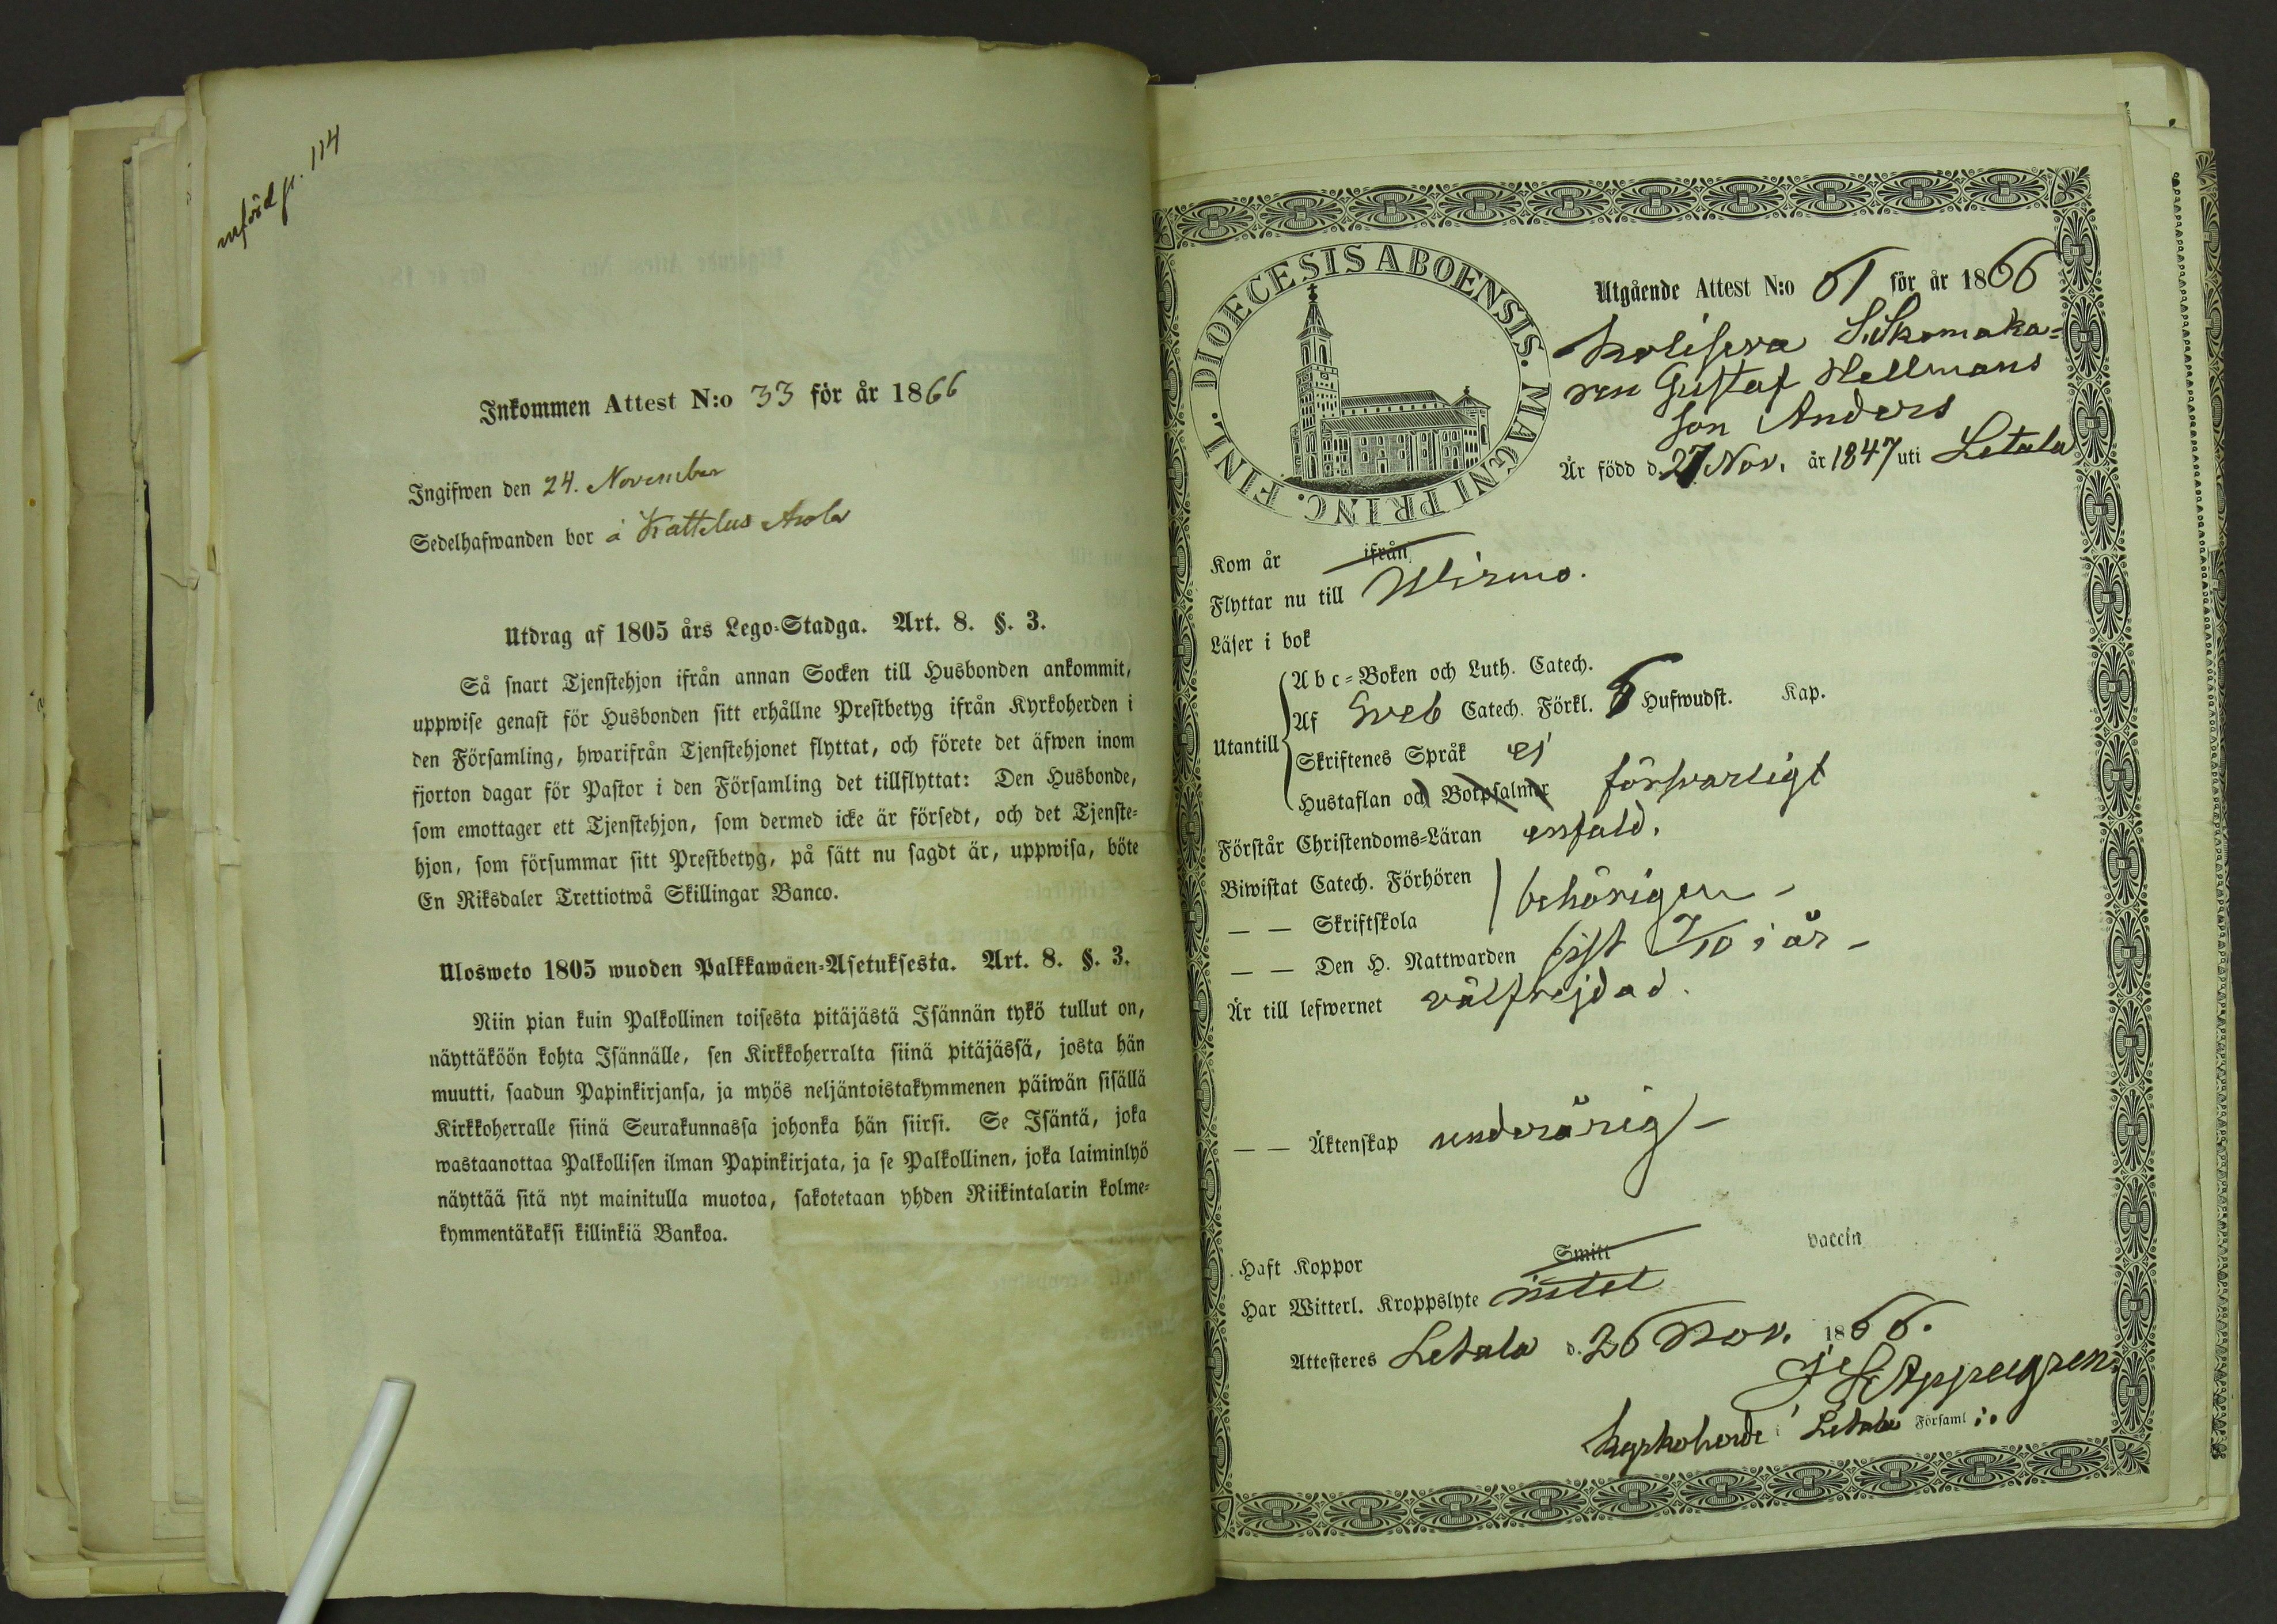 införd p. 114
Inkommen Attest N:o 33 för år 1866
Ingifwen den 24. November
Sedelhafwanden bor å Kattelus Arola
Utdrag af 1805 års Lego-Stadga. Art. 8. §. 3.
Så snart Tjenstehjon ifrån annan Socken till Husbonden ankommit,
uppwise genast för Husbonden sitt erhållne Prestbetyg ifrån Kyrkoherden i
den Församling, hwarifrån Tjenstehjonet flyttat, och förete det äfwen inom
fjorton dagar för Pastor i den Församling det tillflyttat: Den Husbonde,
som emottager ett Tjenstehjon, som dermed icke är försedt, och det Tjenste-
hjon, som försummar sitt Prestbetyg, på sätt nu sagdt är, uppwisa, böte
En Riksdaler Trettiotwå Skillingar Banco.
Ulosweto 1805 wuoden Palkkawäen-Asetuksesta. Art. 8. §. 3.
Niin pian kuin Palkollinen toisesta pitäjästä Isännän tykö tullut on,
näyttäköön kohta Isännälle, sen Kirkkoherralta siinä pitäjässä, josta hän
muutti, saadun Papinkirjansa, ja myös neljäntoistakymmenen päiwän sisällä
Kirkkoherralle siinä Seurakunnassa johonka hän siirsi. Se Isäntä, joka
wastaanottaa Palkollisen ilman Papinkirjata, ja se Palkollinen, joka laiminlyö
näyttää sitä nyt mainitulla muotoa, sakotetaan yhden Riikintalarin kolme-
kymmentäkaksi killinkiä Bankoa.
DIOECESIS ABOENSIS. MAGNI PRINC. FINL.
Utgående Attest N:o 61 för år 1866
S. Skomaka-
ren Gustaf Hellmans
son Anders
Är född d. 27 Nov. år 1847 uti Letala
Kom år ifrån
Flyttar nu till Wirmo.
Läser i bok
Utantill
Abc-Boken och Luth. Catech.
Af Sveb Catech. Förkl. 6 Hufwudst. Kap.
Skriftenes Språk ej
Hustaflan och Botpsalmer försvarligt
Förstår Christendoms-Läran enfald.
Biwistat Catech. Förhören
— — Skriftskola behörigen -
— — Den H. Nattwarden sist 7/10 i år -
Är till lefwernet välfrejdad.
— — Äktenskap underårig -
Haft Koppor Smitt vaccin
Har Witterl. Kroppslyte intet
Attesteres Letala d. 26 Nov. 1866.
Appelgren
Kyrkoherde i Letala Församl:.